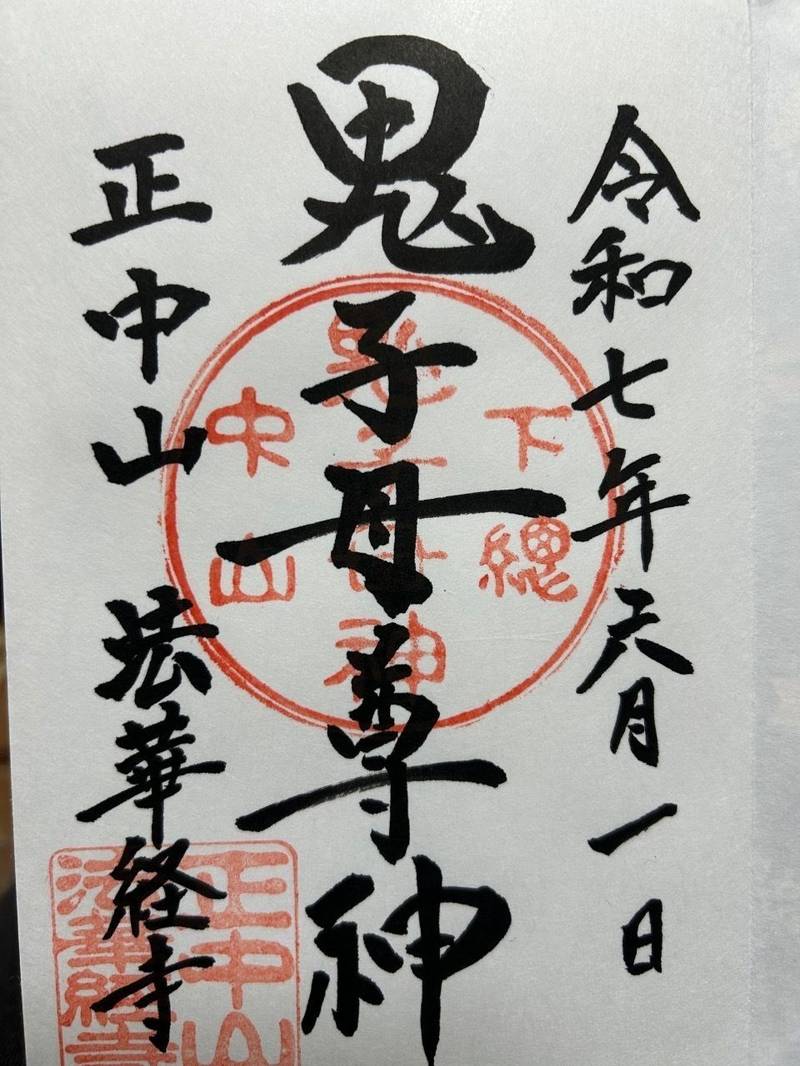 令和七年六月一日
鬼子母尊神
正中山 法華経寺
下總
鬼子母神
中山
正中山
法華經寺